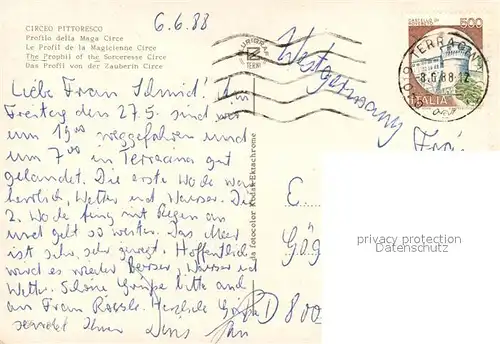 CIRCEO PITTORESCO
Profilo della Maga Circe
Le Profil de la Magicienne Circe
The Prophil of the Sorceresse Circe
Das Profil von der Zauberin Circe
6.6.88
Liebe Frau Schmid! Am
Freitag den 27.5. sind wir
um 19 00 weggefahren und
um 7 00 in Terracina gut
gelandet. Die erste Woche war
herrlich, Wetter und Wasser. Die
2. Woche fing mit Regen an
und geht so weiter. Das Meer
ist sehr, sehr gewegt. Hoffentlich
wird es wieder Besser, Wasser und
Wetter. Schöne Grüße bitte auch
an Frau Roessle. Herzliche Grüße
sendet Ihnen
Fotocolor Kodak Ektachrome
Westgermany
500
ITALIA
TERRACINA
-8.6.88-12
privacy protection
Datenschutz
D 800